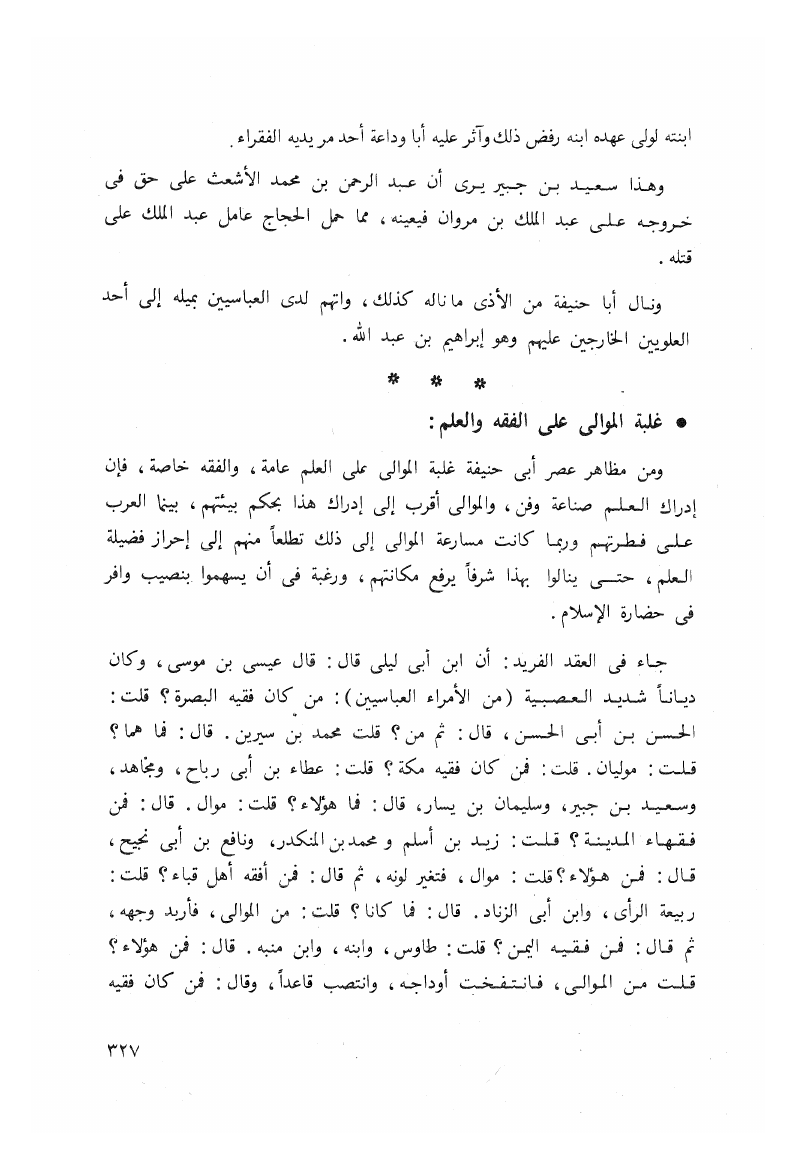 ابنته لولى عهده ابنه رفض ذلك وآثر عليه أبا وداعة أحد مريديه الفقراء .
وهذا سعيد بن جبير يرى أن عبد الرحمن بن محمد الأشعث على حق فى
خروجه على عبد الملك بن مروان فيعينه ، مما حمل الحجاج عامل عبد الملك على
قتله .
ونال أبا حنيفة من الأذى ما ناله كذلك ، واتهم لدى العباسيين بميله إلى أحد
العلويين الخارجين عليهم وهو إبراهيم بن عبد الله .
* * *
• غلبة الموالى على الفقه والعلم :
ومن مظاهر عصر أبى حنيفة غلبة الموالى على العلم عامة ، والفقه خاصة ، فإن
إدراك العلم صناعة وفن ، والموالى أقرب إلى إدراك هذا بحكم بيئتهم ، بينما العرب
على فطرتهم وربما كانت مسارعة الموالى إلى ذلك تطلعاً منهم إلى إحراز فضيلة
العلم ، حتى ينالوا بهذا شرفاً يرفع مكانتهم ، ورغبة فى أن يسهموا بنصيب وافر
فى حضارة الإسلام .
جاء فى العقد الفريد : أن ابن أبى ليلى قال : قال عيسى بن موسى ، وكان
دياناً شديد العصبية (من الأمراء العباسيين) : من كان فقيه البصرة ؟ قلت :
الحسن بن أبى الحسن ، قال : ثم من ؟ قلت محمد بن سيرين . قال : فما هما ؟
قلت : موليان . قلت : فمن كان فقيه مكة ؟ قلت : عطاء بن أبى رباح ، ومجاهد ،
وسعيد بن جبير ، وسليمان بن يسار ، قال : فما هؤلاء ؟ قلت : موال . قال : فمن
فقهاء المدينة ؟ قلت : زيد بن أسلم و محمد بن المنكدر ، ونافع بن أبى نجيح ،
قال : فمن هؤلاء ؟ قلت : موال ، فتغير لونه ، ثم قال : فمن أفقه أهل قباء ؟ قلت :
ربيعة الرأى ، وابن أبى الزناد . قال : فما كانا ؟ قلت : من الموالى ، فأربد وجهه ،
ثم قال : فمن فقيه اليمن ؟ قلت : طاوس ، وابنه ، وابن منبه . قال : فمن هؤلاء ؟
قلت من الموالى ، فانتفخت أوداجه ، وانتصب قاعداً ، وقال : فمن كان فقيه
٣٢٧